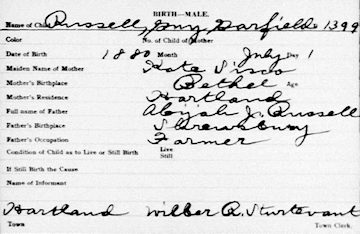 BIRTH—MALE.
Name of Child Russell, Guy Garfield 1399
Color No. of Child of Mother
Date of Birth 1880 Month July Day 1
Maiden Name of Mother Kate Sisco
Mother's Birthplace Bethel Age
Mother's Residence Hartland
Full name of Father Abijah J. Russell
Father's Birthplace Shrewsbury
Father's Occupation Farmer
Condition of Child as to Live or Still Birth Live
Still
If Still Birth the Cause
Name of Informant
Hartland Wilber R. Sturtevant
Town Town Clerk.